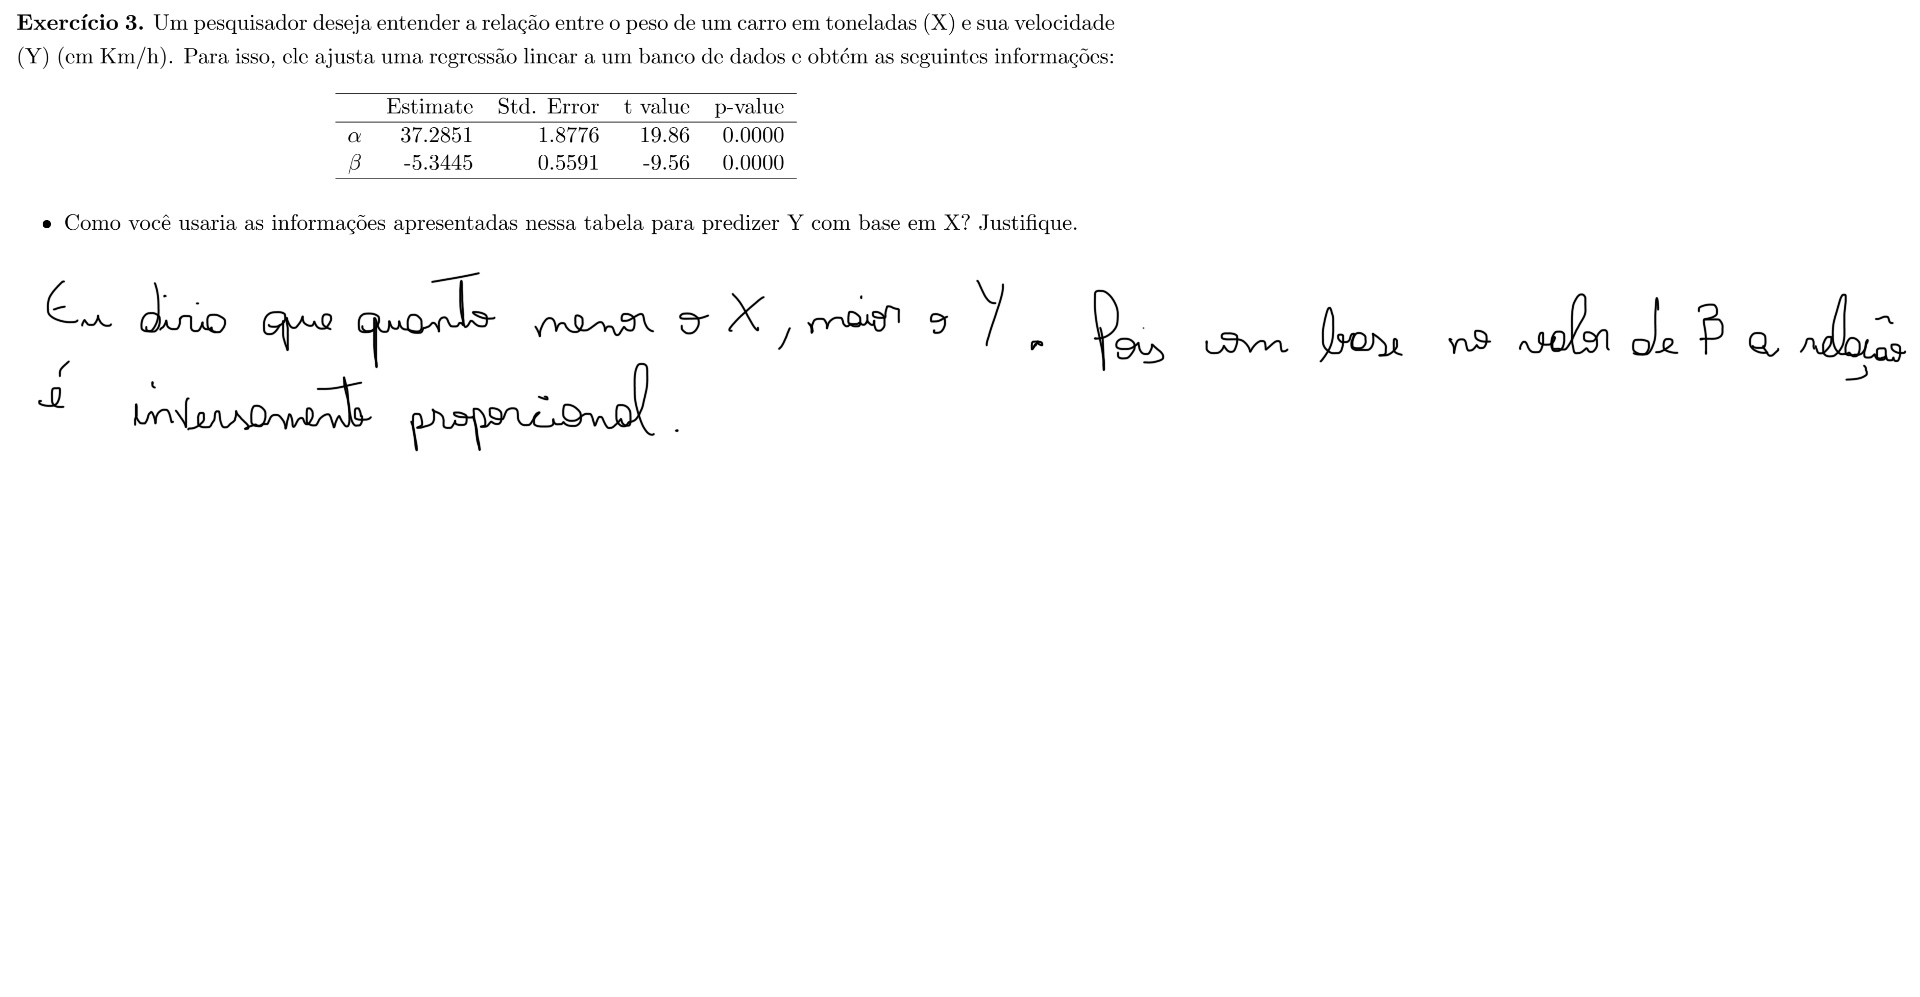 Exercício 3. Um pesquisador deseja entender a relação entre o peso de um carro em toneladas (X) e sua velocidade
(Y) (em Km/h). Para isso, ele ajusta uma regressão linear a um banco de dados e obtém as seguintes informações:
Estimate Std. Error t value p-value
α 37.2851 1.8776 19.86 0.0000
β -5.3445 0.5591 -9.56 0.0000
• Como você usaria as informações apresentadas nessa tabela para predizer Y com base em X? Justifique.
Eu diria que quanto menor o X, maior o Y. Pois com base no valor de β a relação
é inversamente proporcional.